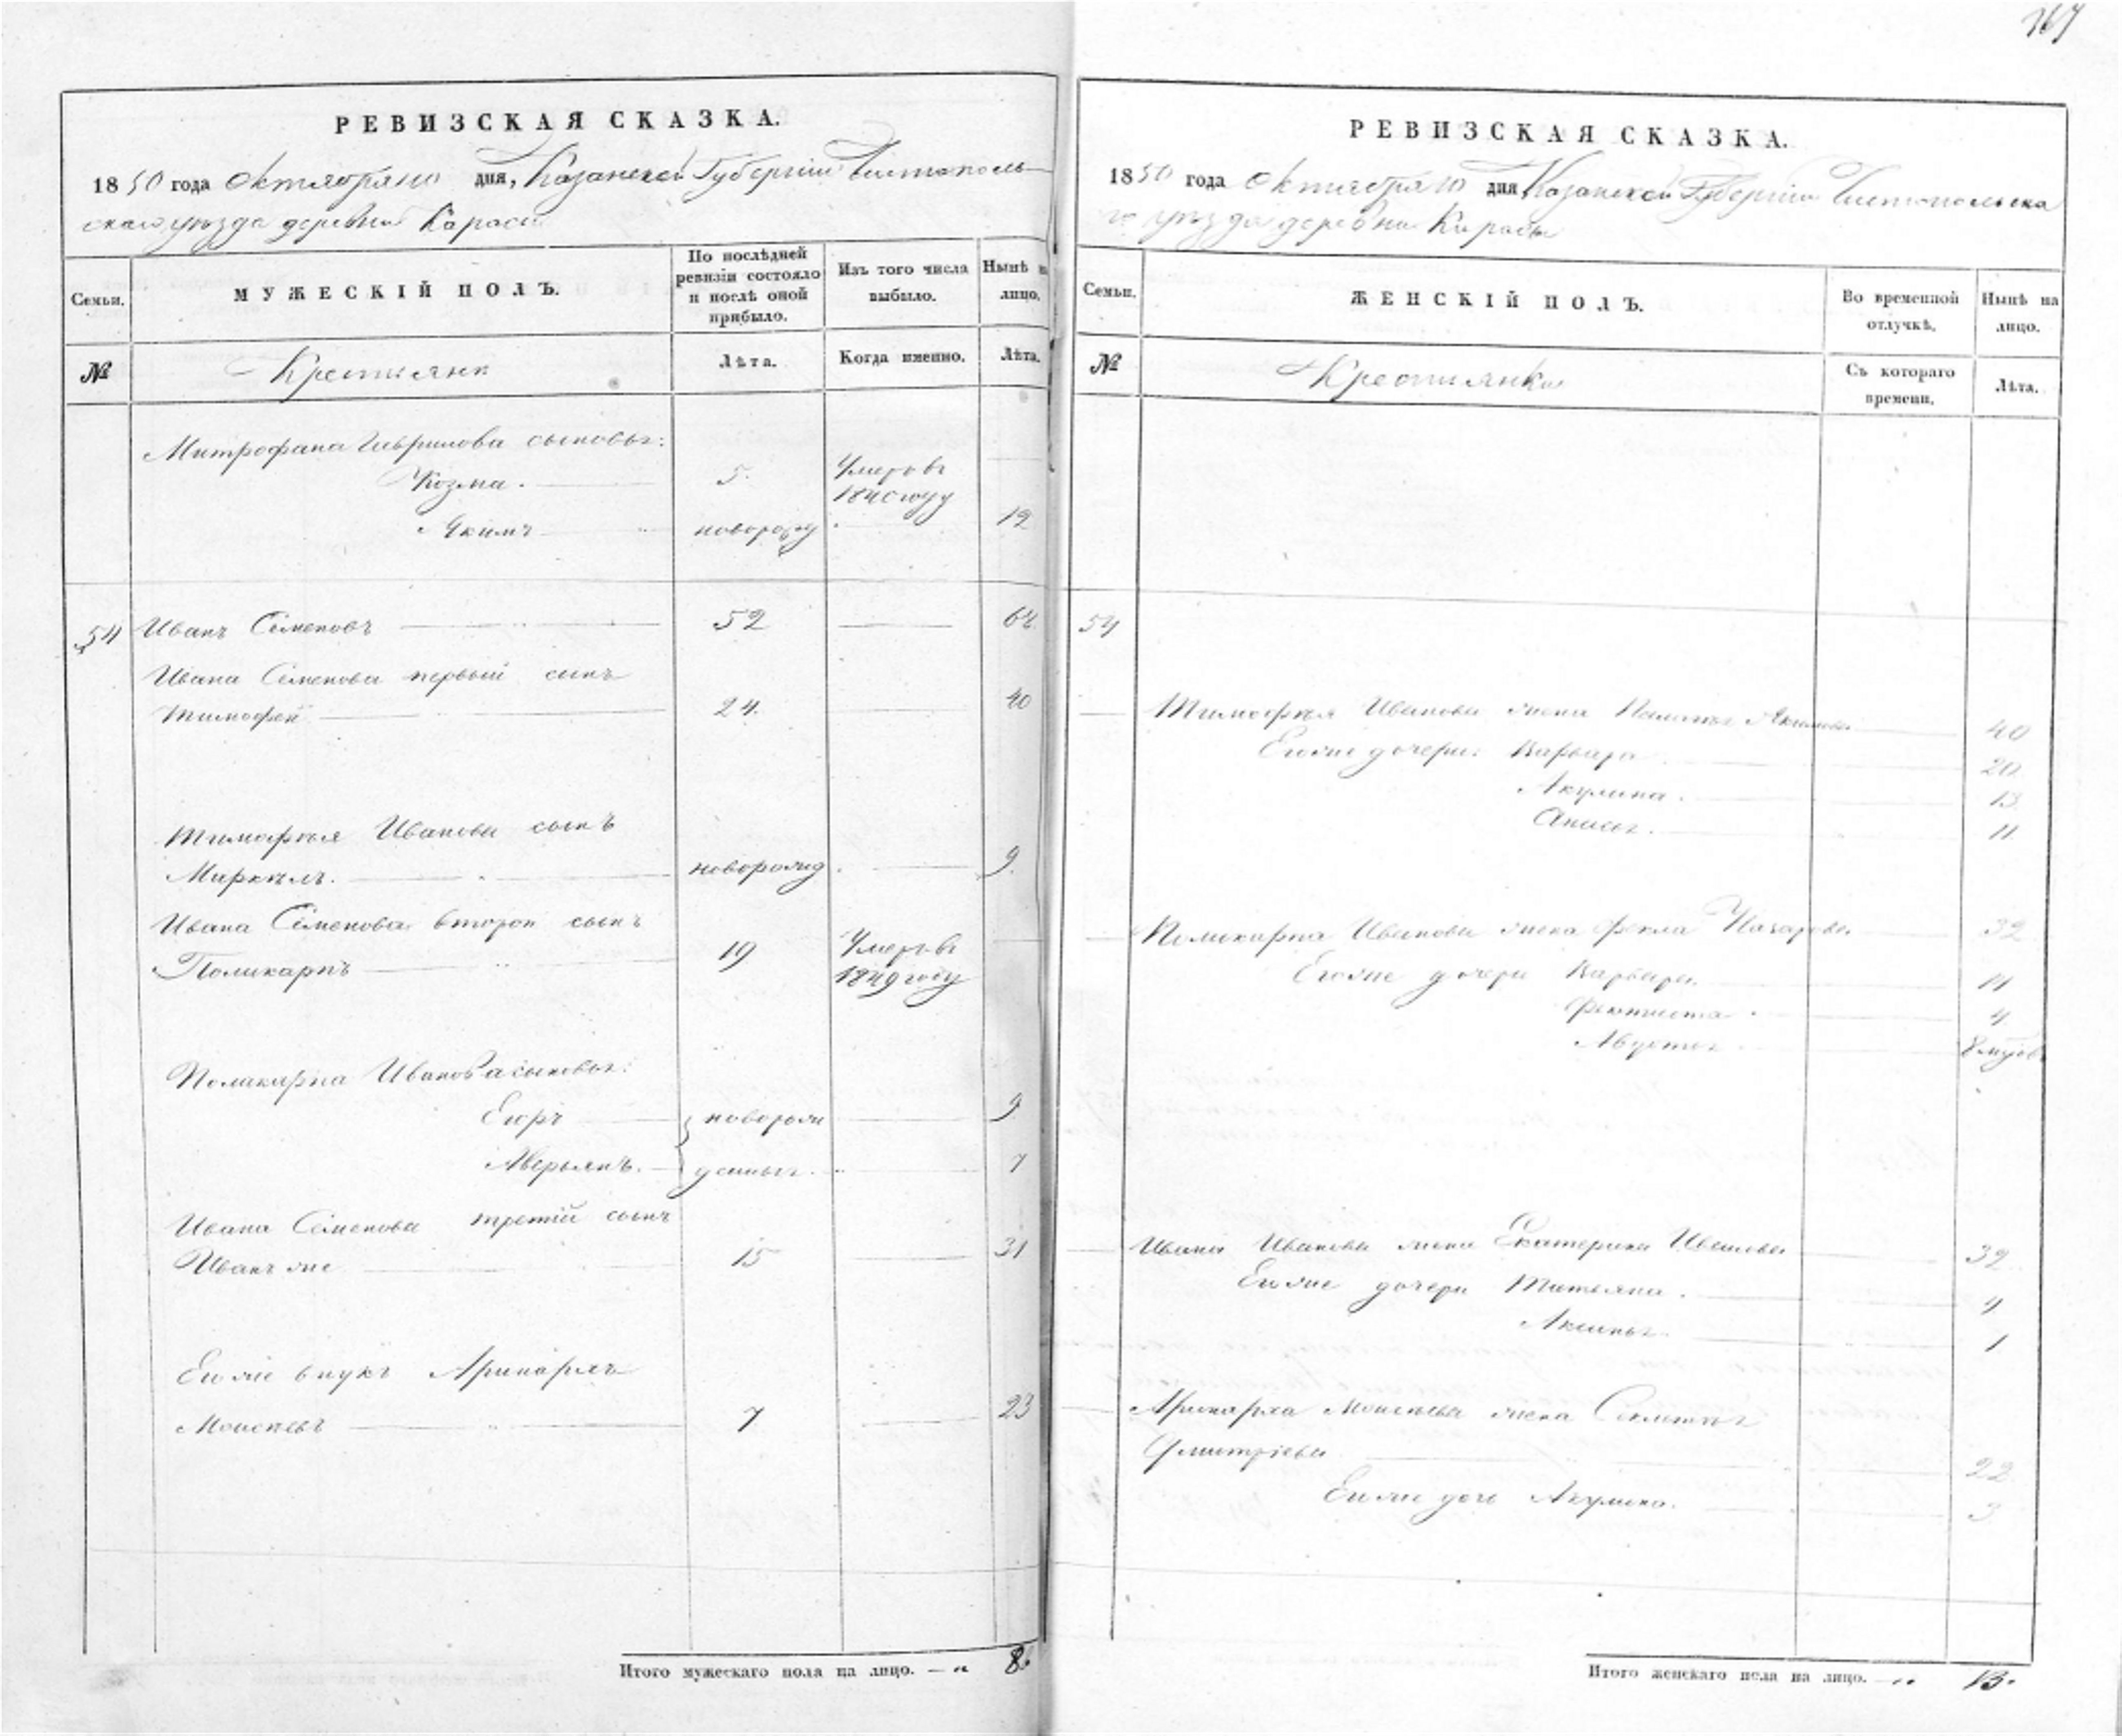 РЕВИЗСКАЯ СКАЗКА.
1850 года Октября 10 дня, Казанской Губернiи Чистополь-
скаго уѣзда деревни
Семьи.
МУЖЕСКIЙ ПОЛЪ.
По послѣдней ревизiи состояло и послѣ оной прибыло.
Изъ того числа выбыло.
Нынѣ на лицо.
№
Крестьяне
Лѣта.
Когда именно.
Лѣта.
Митрофана Гаврилова сыновья:
Козма. 5. Умеръ въ 1840 году
Якимъ новорожд 12
54 Иванъ Семеновъ 52
Ивана Семенова первый сынъ
Тимофей 24. 40
Тимофѣя Иванова сынъ
Маркелъ. новорожд. 9.
Ивана Семенова второй сынъ
Поликарпъ 19 Умеръ въ 1849 году
Поликарпа Иванова сыновья:
Егоръ новорож 9
Аверьянъ. денные. 7
Ивана Семенова третiй сынъ
Иванъ же 15 31
Его же внукъ
Моисеевъ 7 23
Итого мужескаго пола на лицо. — „ 8.
РЕВИЗСКАЯ СКАЗКА.
1850 года Октября 10 дня Казанской Губернiи Чистопольска
го уѣзда деревни
Семьи.
ЖЕНСКIЙ ПОЛЪ.
Во временной отлучкѣ.
Нынѣ на лицо.
№
Крестьянки
Съ котораго времени.
Лѣта.
54
Тимофѣя Иванова жена Акимова 40
Его же дочери: Варвара 20
Акулина. 13
Анисья. 11
Поликарпа Иванова жена Фекла Назарова 32
Его же дочери Варвара. 11
Феоктиста. 4
Ивана Иванова жена Екатерина Иванова 32
Его же дочери Татьяна. 4
Аксинья. 1
Моисеева жена
Дмитрiева 22
Его же дочь Акулина. 3
Итого женскаго пола на лицо. — „ 13.